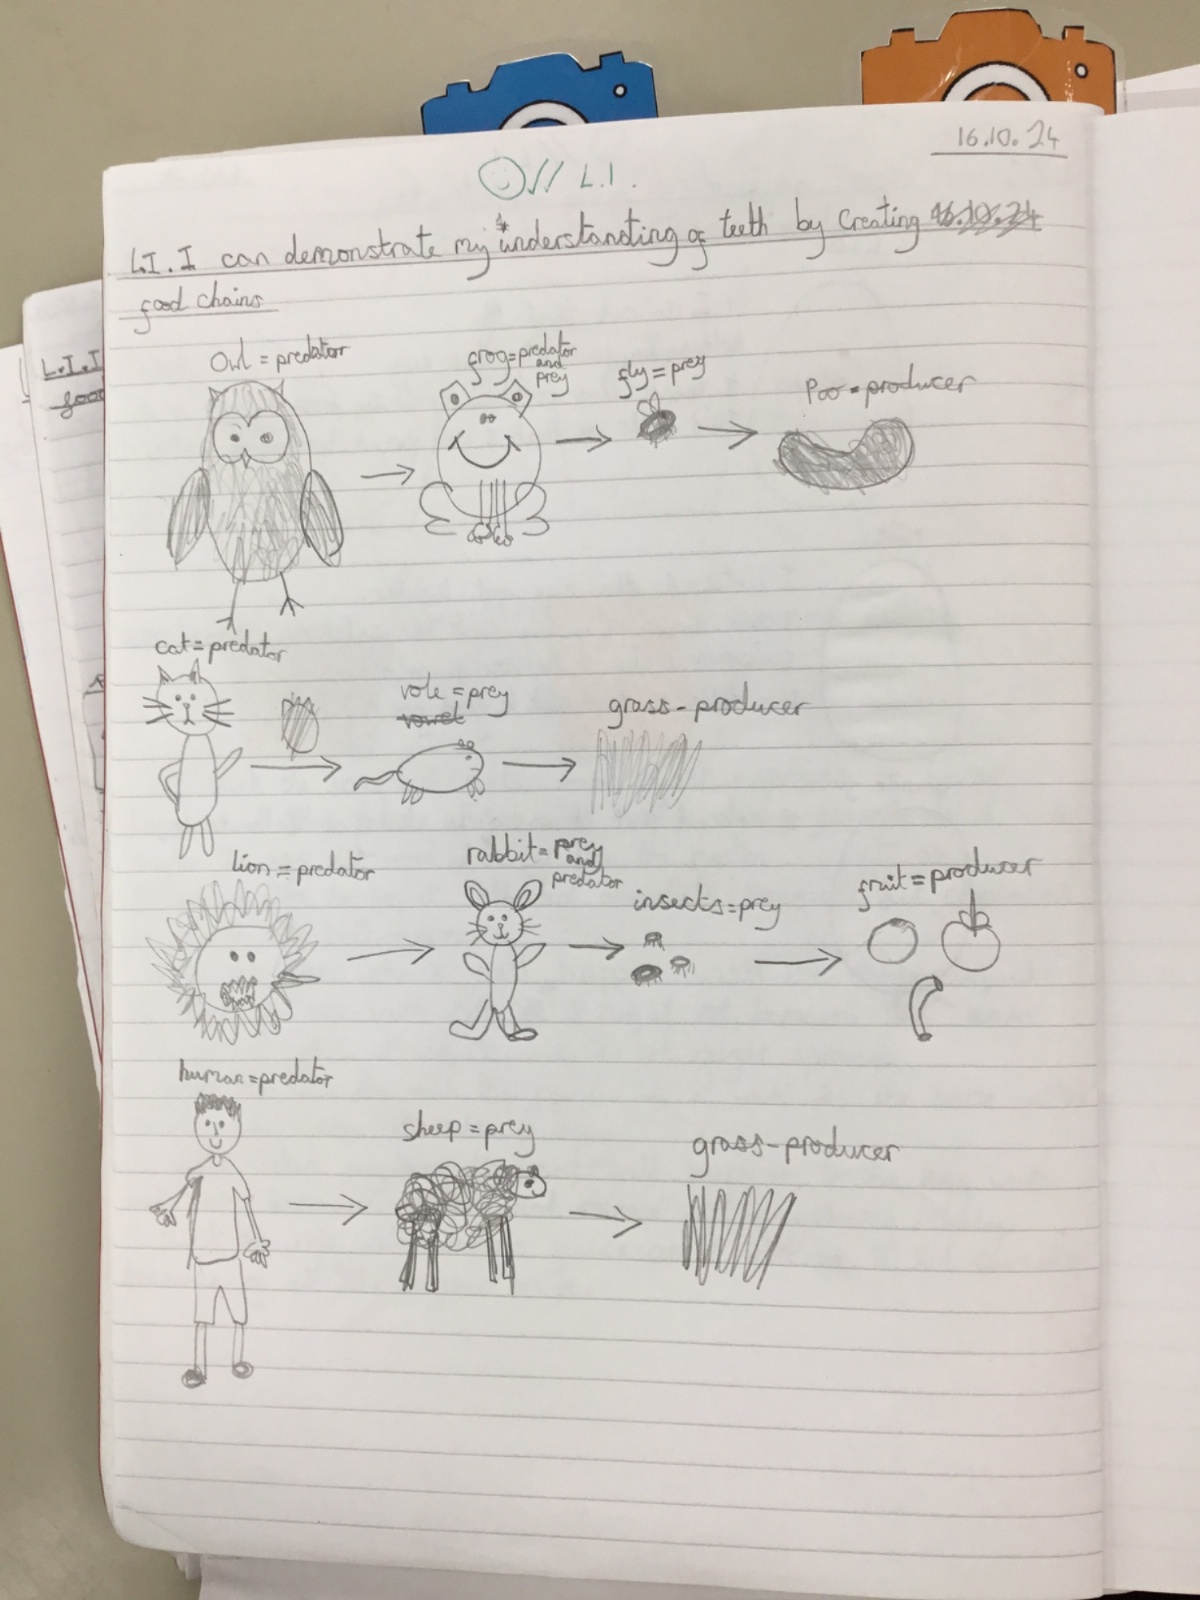 16.10.24
L.I.
L.I. I can demonstrate my understanding of teeth by creating
food chains
L.I.I
Owl = predator
frog = predator
and
prey
fly = prey
Poo = producer
cat = predator
vole = prey
vowel
grass - producer
lion = predator
rabbit = prey
and
predator
insects = prey
fruit = producer
human = predator
sheep = prey
grass - producer